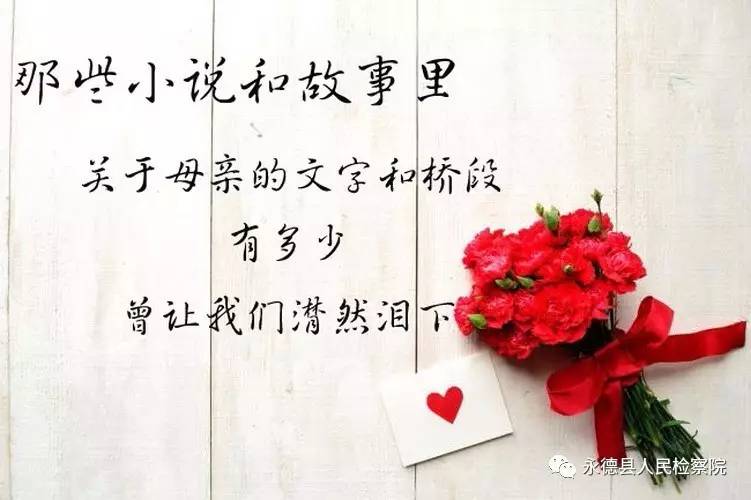 那些小说和故事里
关于母亲的文字和桥段
有多少
曾让我们潸然泪下
永德县人民检察院